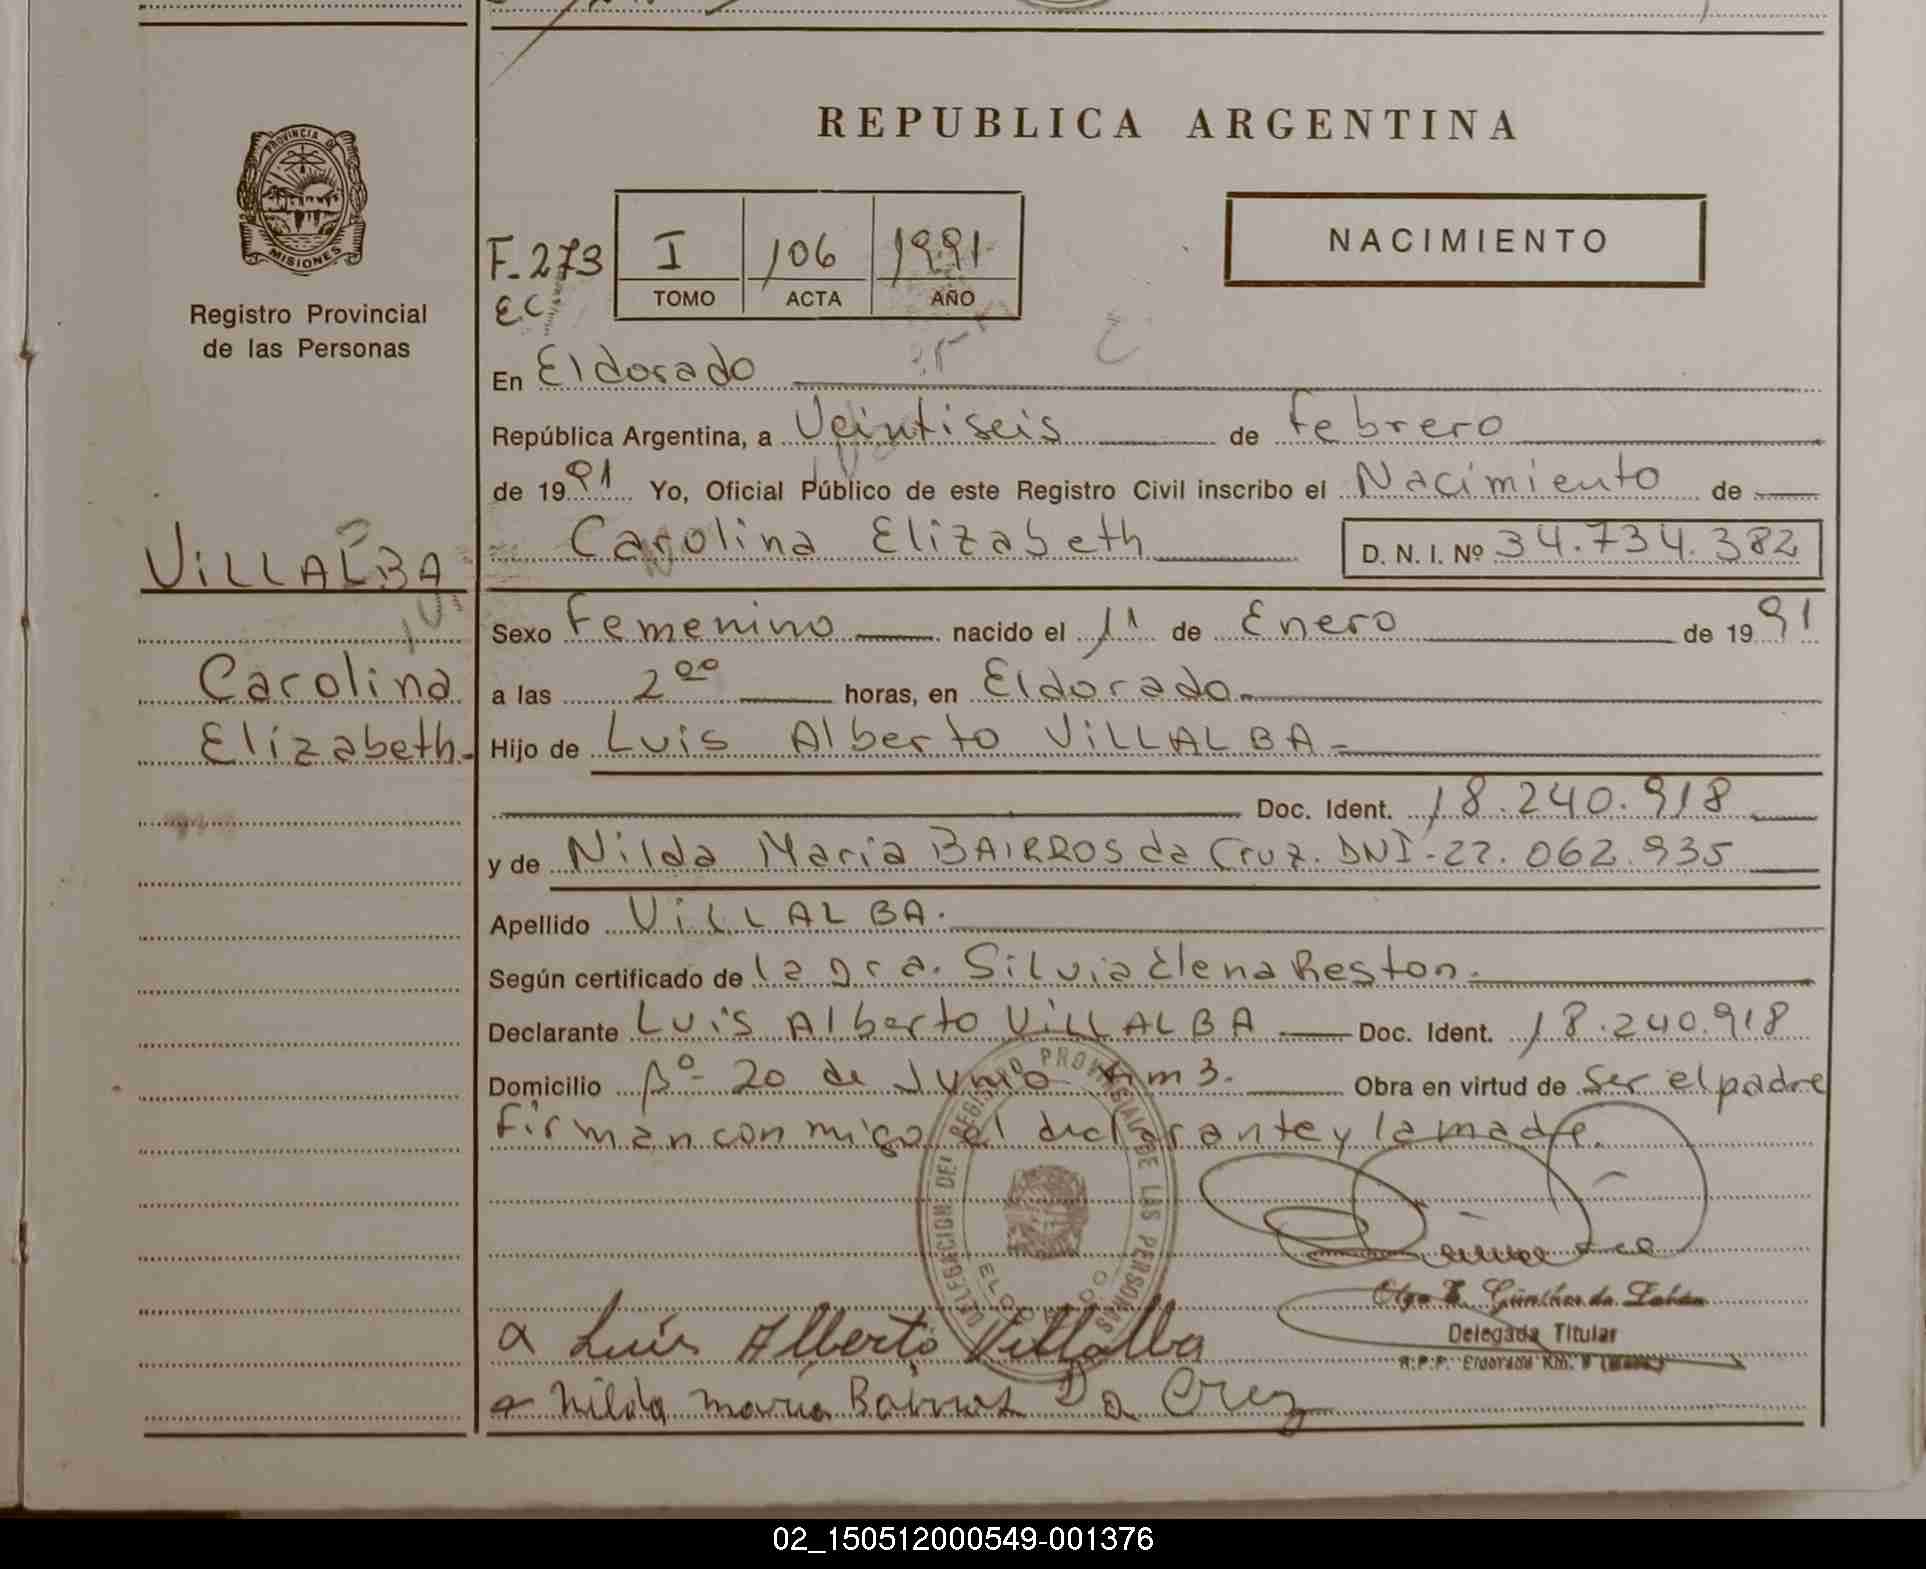 REPUBLICA ARGENTINA
PROVINCIA DE
MISIONES
Registro Provincial
de las Personas
F. 273
EC
I 106 1991
TOMO ACTA AÑO
NACIMIENTO
En Eldorado
República Argentina, a Veintiseis de Febrero
de 1991 Yo, Oficial Público de este Registro Civil inscribo el Nacimiento de
Carolina Elizabeth D. N. I. Nº 34.734.382
VILLALBA
Carolina
Elizabeth.
Sexo Femenino nacido el 11 de Enero de 1991
a las 2 00 horas, en Eldorado
Hijo de Luis Alberto VILLALBA
Doc. Ident. 18.240.918
y de Nilda Maria BAIRROS da Cruz. DNI-22.062.935
Apellido VILLALBA.
Según certificado de la Dra. Silvia Elena Reston.
Declarante Luis Alberto VILLALBA Doc. Ident. 18.240.918
Domicilio Bº 20 de Junio km 3. Obra en virtud de Ser el padre
Firman conmigo el declarante y la madre.
DELEGACION DEL REGISTRO PROVINCIAL DE LAS PERSONAS
ELDORADO
Delegada Titular
R.P.P. Eldorado Km.
Luis Alberto Villalba
Nilda maria Bairros Da Cruz
02_150512000549-001376